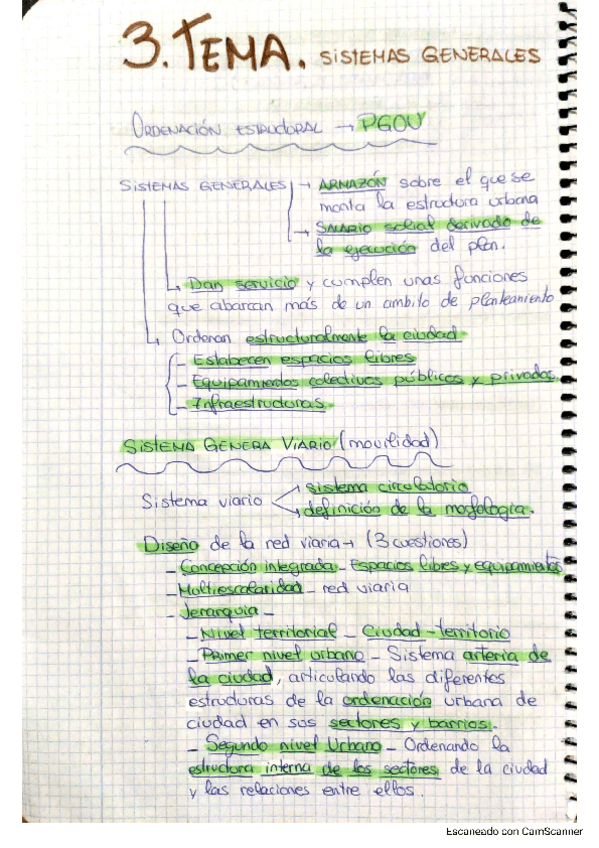 3. TEMA. SISTEMAS GENERALES
ORDENACIÓN ESTRUCTURAL → PGOU
SISTEMAS GENERALES → ARMAZÓN sobre el que se
monta la estructura urbana
→ SALARIO social derivado de
la ejecución del plan.
Dan servicio y cumplen unas funciones
que abarcan más de un ambito de planteamiento
Ordenan estructuralmente la ciudad
- Establecen espacios libres
- Equipamientos colectivos públicos y privados.
- Infraestructuras.
SISTEMA GENERA VIARIO (movilidad)
Sistema viario
sistema circulatorio
definición de la morfología.
Diseño de la red viaria → (3 cuestiones)
- Concepción integrada - Espacios libres y equipamientos
- Multiescalaridad - red viaria
- Jerarquia -
- Nivel territorial - Ciudad-territorio
- Primer nivel urbano - Sistema arteria de
la ciudad, articulando las diferentes
estructuras de la ordenación urbana de
ciudad en sus sectores y barrios.
- Segundo nivel Urbano - Ordenando la
estructura interna de los sectores de la ciudad
y las relaciones entre ellos.
Escaneado con CamScanner